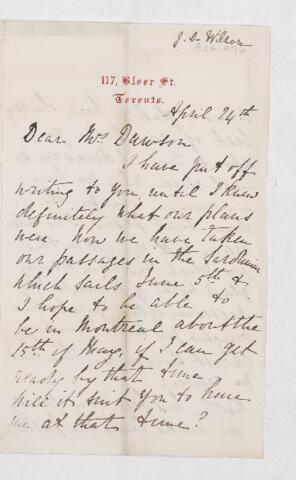 J. D. Wilson
117, Bloor St.
Toronto.
April 24th
Dear Mrs Dawson
I have put off
writing to you until I knew
definitely what our plans
were. Now we have taken
our passages in the Sardinian
which sails June 5th &
I hope to be able to
be in Montreal about the
15th of May, if I can get
ready by that time.
Will it suit you to have
me at that time?